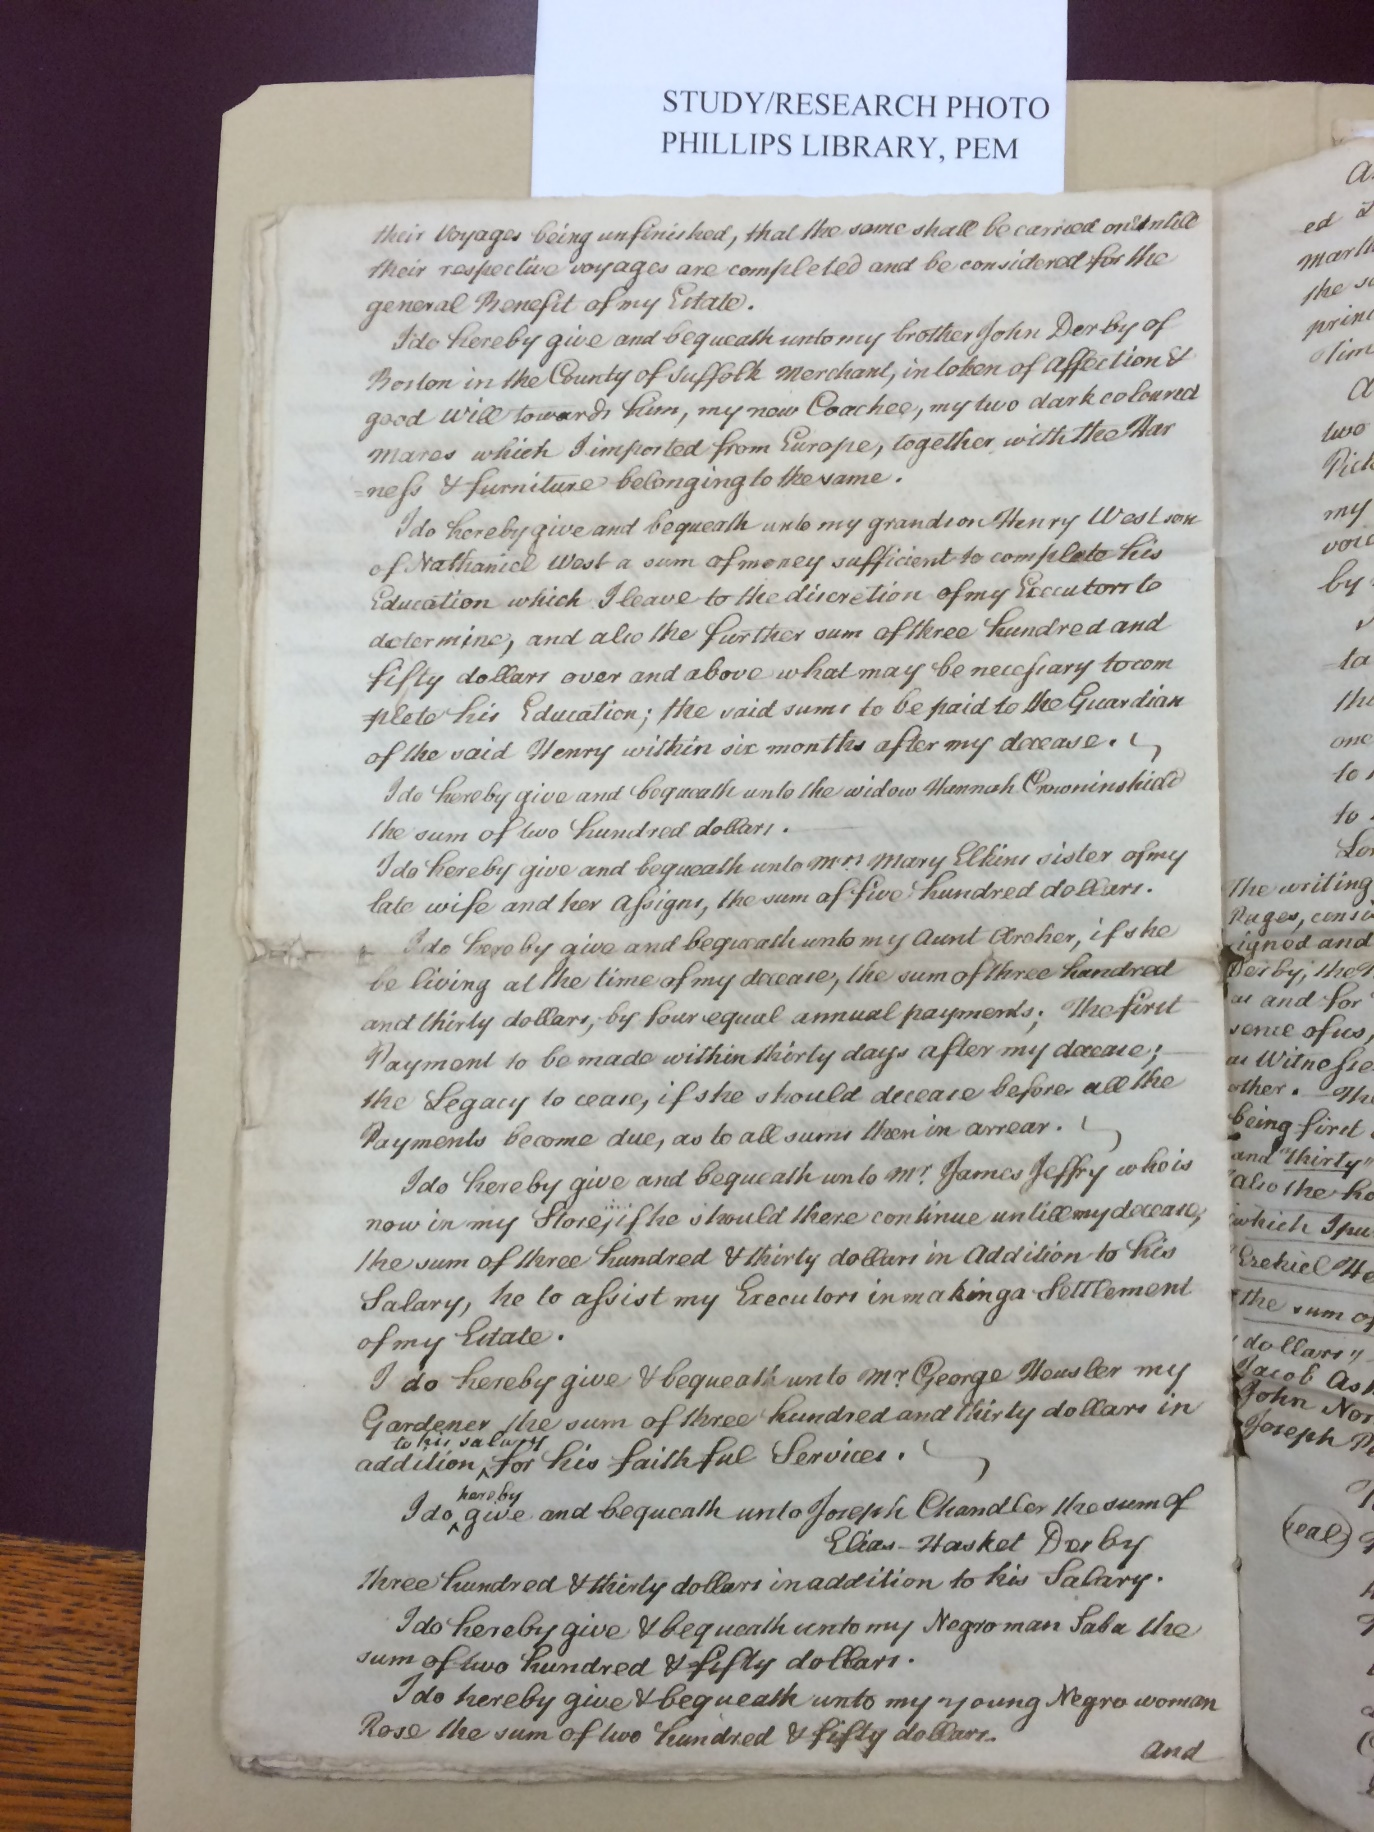 STUDY/RESEARCH PHOTO
PHILLIPS LIBRARY, PEM
their Voyages being unfinished, that the same shall be carried on untill
their respective voyages are completed and be considered for the
general Benefit of my Estate.
I do hereby give and bequeath unto my brother John Derby of
Boston in the County of Suffolk Merchant, in token of Affection &
good Will towards him, my new Coachee, my two dark coloured
Mares which I imported from Europe, together with the Har
=ness & furniture belonging to the same.
I do hereby give and bequeath unto my grandson Henry West son
of Nathaniel West a sum of money sufficient to complete his
Education which I leave to the discretion of my Executors to
determine, and also the further sum of three hundred and
fifty dollars over and above what may be necessary to com
=plete his Education; the said sums to be paid to the Guardian
of the said Henry within six months after my decease.
I do hereby give and bequeath unto the widow Hannah Crowninshield
the sum of two hundred dollars.
I do hereby give and bequeath unto Mrs Mary Elkins sister of my
late wife and her Assigns, the sum of five hundred dollars.
I do hereby give and bequeath unto my Aunt Archer, if she
be living at the time of my decease, the sum of three hundred
and thirty dollars, by four equal annual payments; The first
Payment to be made within thirty days after my decease;
the Legacy to cease, if she should decease before all the
Payments become due, as to all sums then in arrear.
I do hereby give and bequeath unto Mr. James Jeffry who is
now in my Store, if he should there continue untill my decease,
the sum of three hundred & thirty dollars in Addition to his
Salary, he to assist my Executors in making a Settlement
of my Estate.
I do hereby give & bequeath unto Mr. George Heusler my
Gardener the sum of three hundred and thirty dollars in
to his salary
addition ^ for his faithful Services.
hereby
I do ^ give and bequeath unto Joseph Chandler the sum of
Elias-Hasket Derby
three hundred & thirty dollars in addition to his Salary.
I do hereby give & bequeath unto my Negro man Saba the
sum of two hundred & fifty dollars.
I do hereby give & bequeath unto my young Negro woman
Rose the sum of two hundred & fifty dollars.
And
ed
the
two
my
by
one
to
The writing
Pages,
signed and
Derby, the
as and for
sence of us,
as Witnesses
other. The
being first
and "thirty"
also the
which I
Ezekiel
the sum of
dollars"
Jacob
John
Joseph
seal